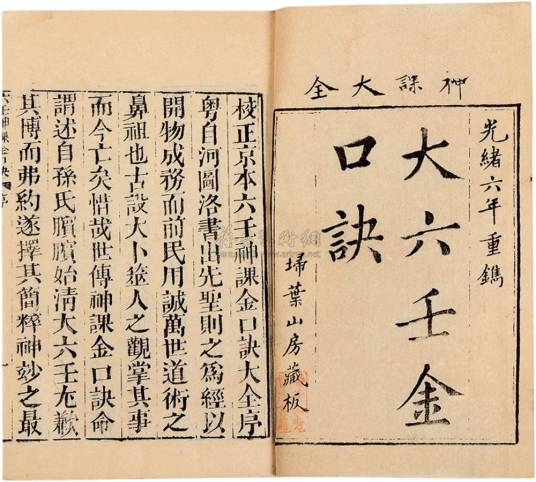 神課大全
光緒六年重鐫
大六壬金
口訣
埽葉山房藏板
校正京本六壬神課金口訣大全序
粵自河圖洛書出先聖則之為經以
開物成務而前民用誠萬世道術之
鼻祖也古設大卜簭人之觀掌其事
而今亡矣惜哉世傳神課金口訣命
謂述自孫氏臏臏始淸大六壬尨歉
其博而弗約遂擇其簡粹神玅之最
六壬神課金口訣 序